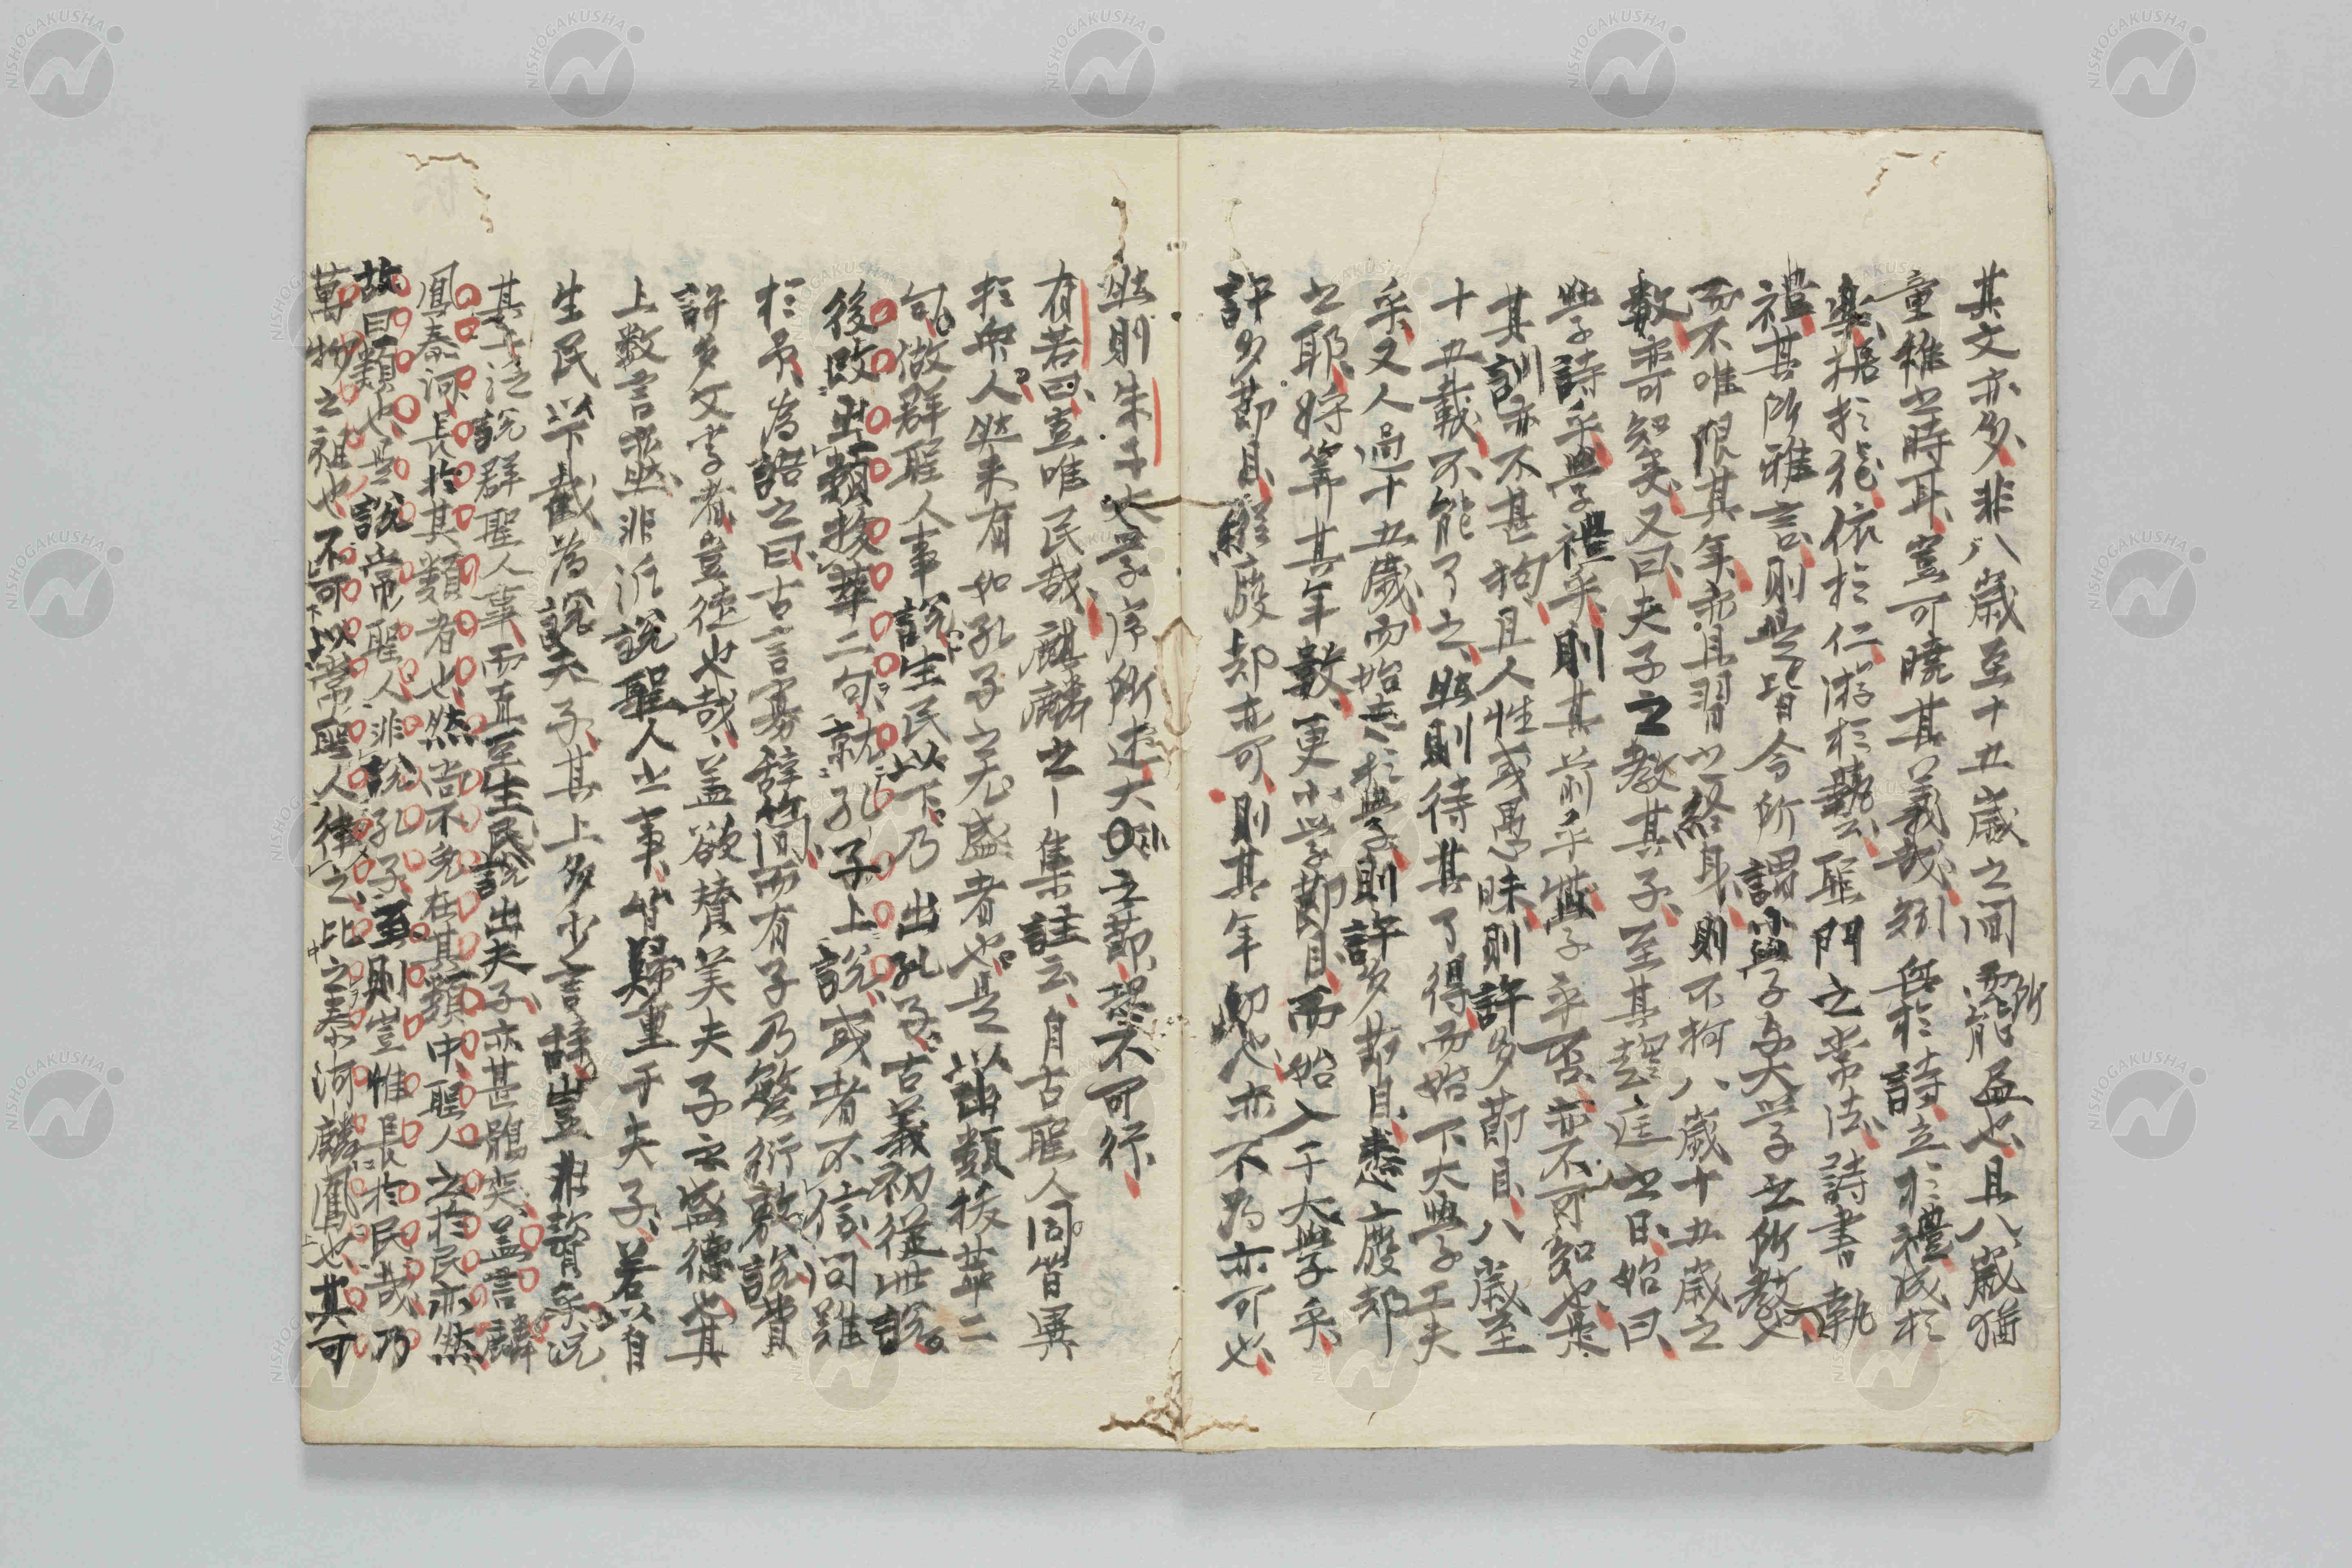 其文亦多、非八歳至十五歳之間所能益也、且八歳猶
童稚之時耳、豈可曉其義哉、矧興於詩、立於禮、成於
樂、據於徳、依於仁、游於藝、聖門之常法、詩書執
禮、其所雅言、則是皆今所謂小學與大学之所教、
而不唯限其年、亦且習以終身、則不拘八歳十五歳之
數、亦可知矣、又曰、夫子之教其子、至其趨庭之日、始曰、
学詩乎、學禮乎、則其前乎学乎否、亦不可知也、是
其訓亦不甚拘、且人性或愚昧、則許多節目、八歳至
十五歳、不能了之、然則待其了得、而始下大學工夫
乎、又人過十五歳、而始志於學、則許多節目、悉廢却
之耶、將算其年數、更小学節目、而始入于大學乎、
許多節目、雖廢却亦可、則其年幼也、亦不為亦可也、
然則朱子大学序所述大小之節、恐不可行、
有若曰、豈唯民哉、麒麟之ー集註云、自古聖人、同皆異
於衆人、然未有如孔子之尤盛者也、是以出類抜萃二
句、做群聖人事説、生民以下、乃出孔子、古義初從此説、
後改出類抜萃二句、就孔子上説、或者不信、問難
於予、為詰之曰、古言寡辞簡、而有子乃繁衍敷説、費
許多文字者、豈徒也哉、蓋欲賛美夫子之盛徳也、其
上數言、亦非泛説聖人之事、皆歸重于夫子、若以自
生民以下截為説夫子、其上多少言辭、豈非贅乎、況
其上泛説群聖人事、而直至生民、説出夫子、亦甚鶻突、蓋言麟
鳳泰河、長於其類者也、然尚不免在其類中、聖人之於民亦然、
故曰類也、是説常聖人、非説孔子、至則豈惟長於民哉、乃
萬物之祖也、不可以常聖人律之、比之泰河麟鳳也、其可